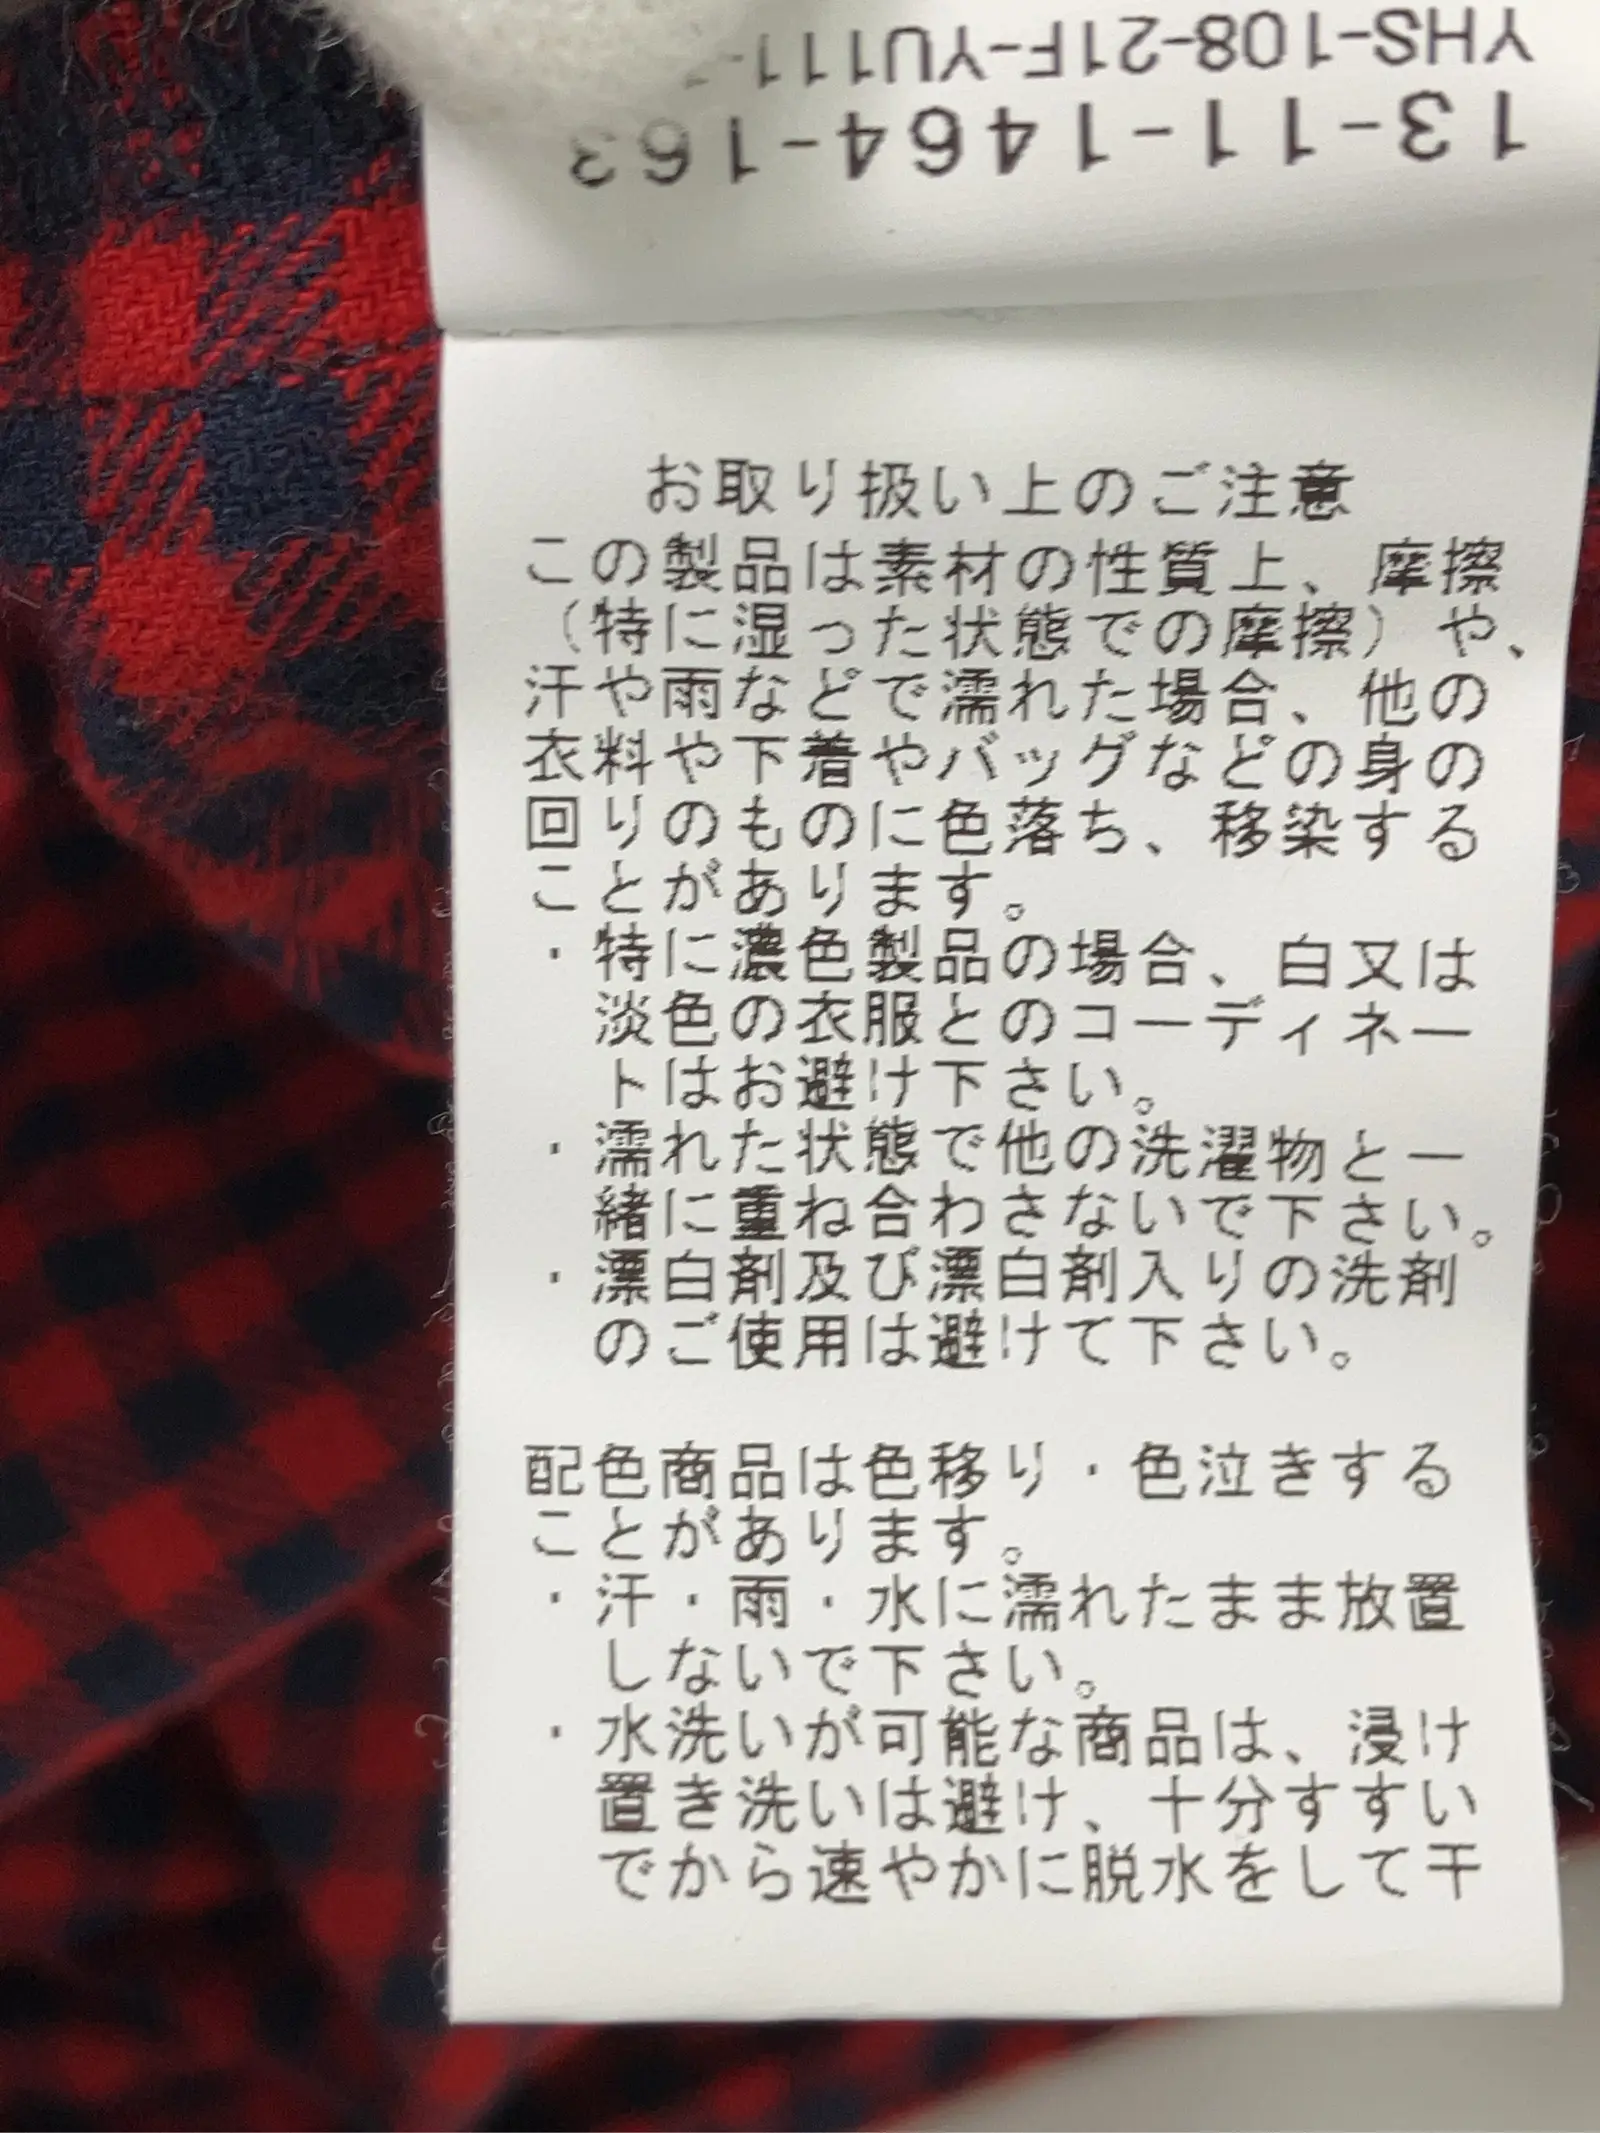 YHS-108-21F-YU111-
13-11-1464-163
お取り扱い上のご注意
この製品は素材の性質上、摩擦
（特に湿った状態での摩擦）や、
汗や雨などで濡れた場合、他の
衣料や下着やバッグなどの身の
回りのものに色落ち、移染する
ことがあります。
・特に濃色製品の場合、白又は
淡色の衣服とのコーディネー
トはお避け下さい。
・濡れた状態で他の洗濯物と一
緒に重ね合わさないで下さい。
・漂白剤及び漂白剤入りの洗剤
のご使用は避けて下さい。
配色商品は色移り・色泣きする
ことがあります。
・汗・雨・水に濡れたまま放置
しないで下さい。
・水洗いが可能な商品は、浸け
置き洗いは避け、十分すすい
でから速やかに脱水をして干